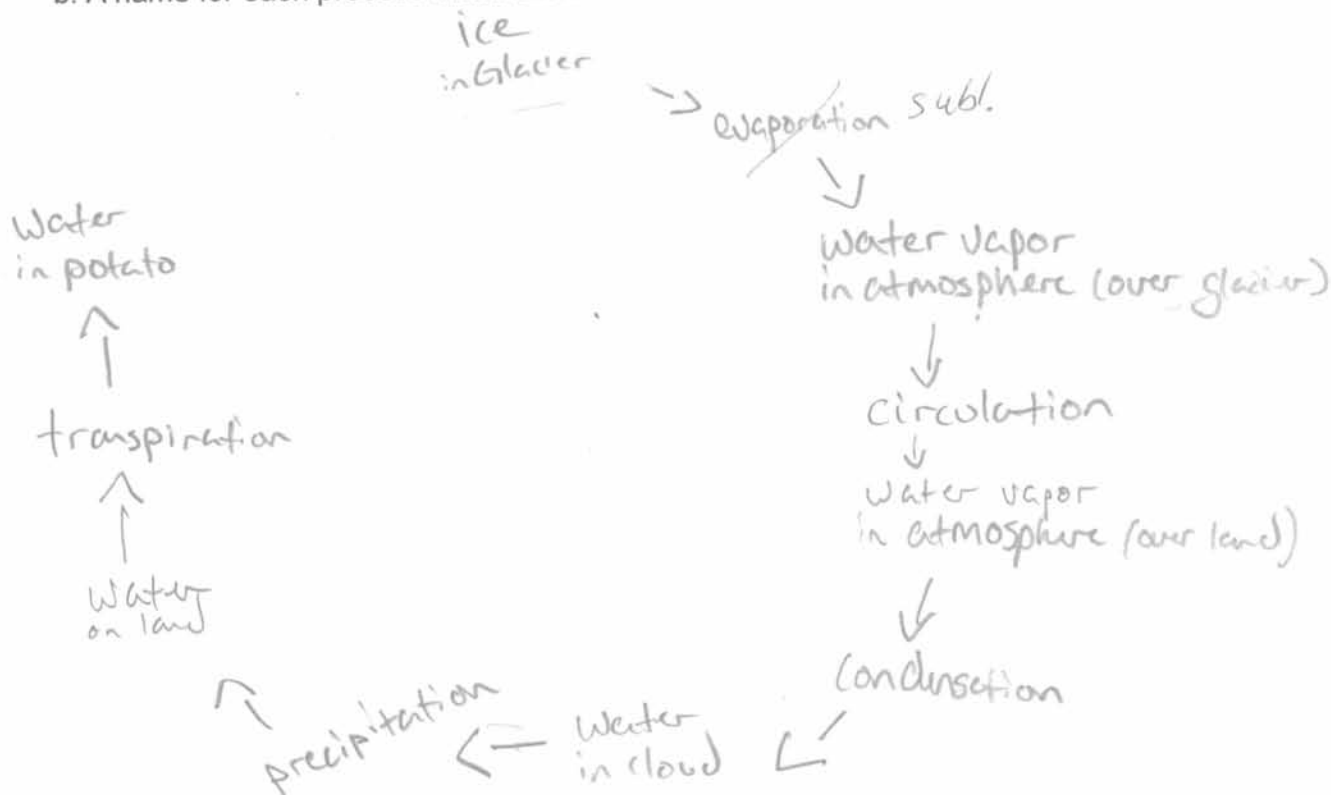 b. A name for each
ice
in Glacier
evaporation subl.
Water vapor
in atmosphere (over glacier)
circulation
water vapor
in atmosphere (over land)
Condensation
Water
in cloud
precipitation
Water
on land
transpiration
Water
in potato